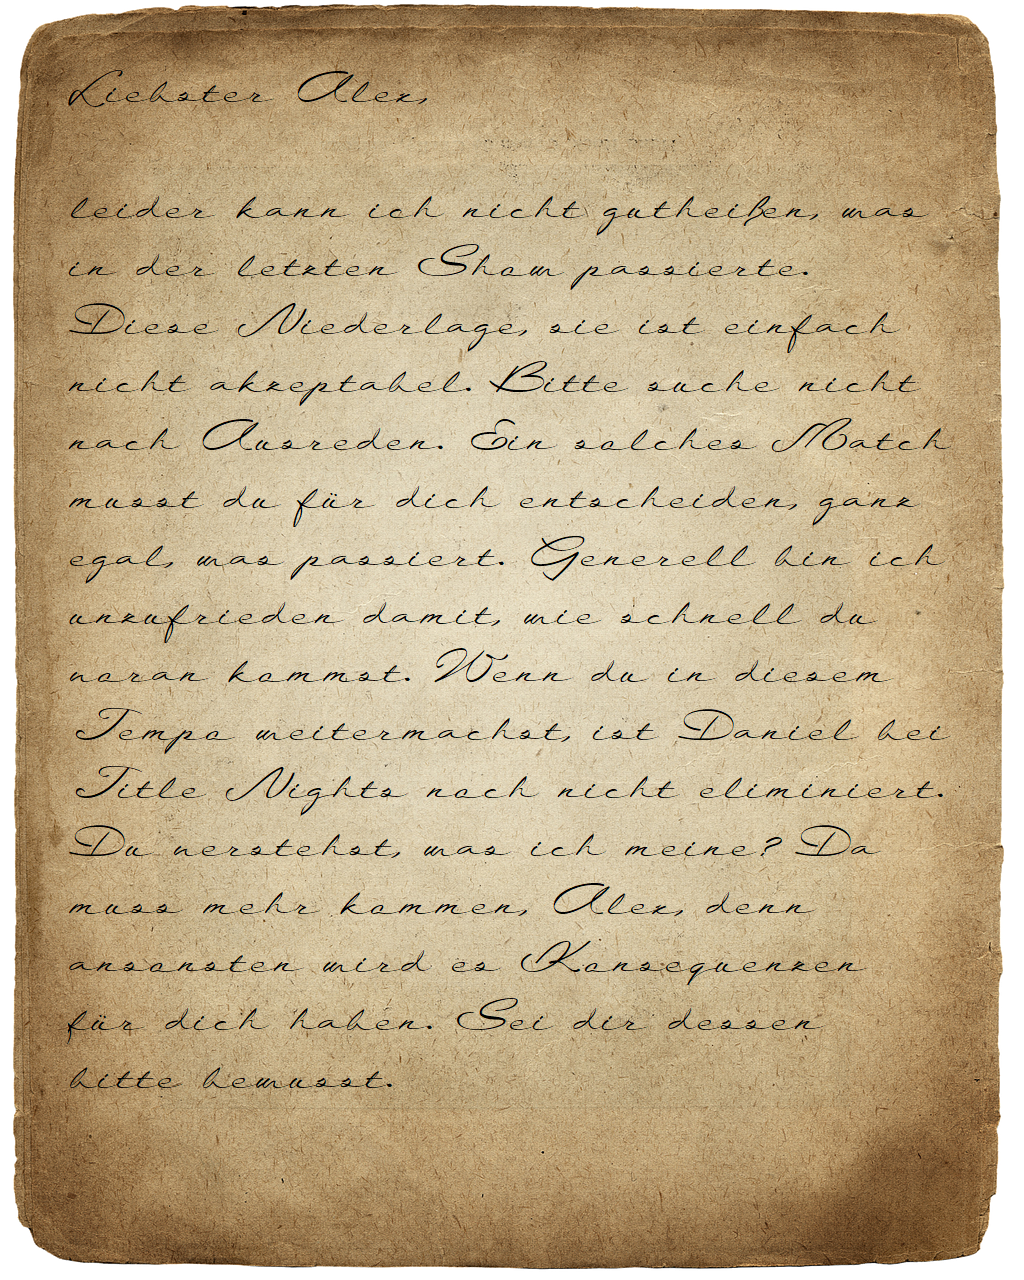 Liebster Alex,
leider kann ich nicht gutheißen, was
in der letzten Show passierte.
Diese Niederlage, sie ist einfach
nicht akzeptabel. Bitte suche nicht
nach Ausreden. Ein solches Match
musst du für dich entscheiden, ganz
egal, was passiert. Generell bin ich
unzufrieden damit, wie schnell du
voran kommst. Wenn du in diesem
Tempo weitermachst, ist Daniel bei
Title Nights noch nicht eliminiert.
Du verstehst, was ich meine? Da
muss mehr kommen, Alex, denn
ansonsten wird es Konsequenzen
für dich haben. Sei dir dessen
bitte bewusst.